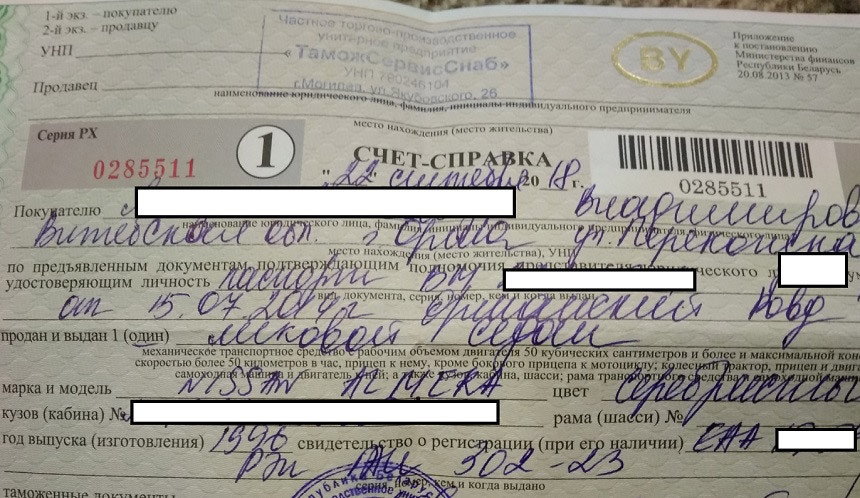 1-й экз. – покупателю
2-й экз. – продавцу
УНП
Продавец
Частное торгово-производственное
унитарное предприятие
«ТаможСервисСнаб»
УНП 790246104
г.Могилев, ул.Якубовского, 26
BY
Приложение
к постановлению
Министерства финансов
Республики Беларусь
20.08.2013 № 57
наименование юридического лица, фамилия, инициалы индивидуального предпринимателя
место нахождения (место жительства)
Серия РХ
0285511
1
СЧЕТ-СПРАВКА
0285511
"22" сентября 2018 г.
Покупателю Владимиров
наименование юридического лица, фамилия, инициалы индивидуального предпринимателя
Витебская обл. г Орша ул.
место нахождения (место жительства), УНП
по предъявленным документам, подтверждающим полномочия представителя юридического
удостоверяющим личность паспорт ВМ
вид документа, серия, номер, кем и когда выдан
от 15.07.2014г Оршанский РОВД
продан и выдан 1 (один) легковой седан
механическое транспортное средство с рабочим объемом двигателя 50 кубических сантиметров и более и максимальной
скоростью более 50 километров в час, прицеп к нему, кроме бокового прицепа к мотоциклу; колесный трактор, прицеп и
самоходная машина и двигатель к ней; а также кузов, кабина, шасси; рама транспортного средства и самоходной
марка и модель NISSAN ALMERA цвет
кузов (кабина) № рама (шасси) №
год выпуска (изготовления) 1996 свидетельство о регистрации (при его наличии) САА
302-23
серия, номер, кем и когда выдано
таможенные документы